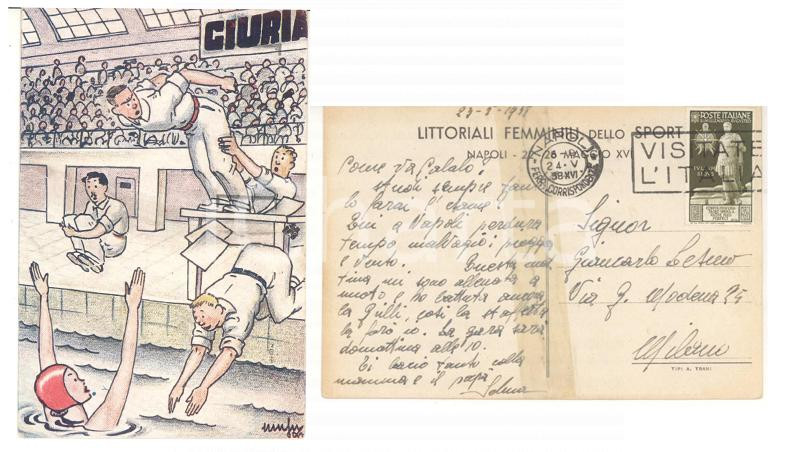 GIURIA
23-5-1938
LITTORIALI FEMMINILI DELLO SPORT
NAPOLI - 2 - 28 MAGGIO XVI
NAPOLI
24·V
38·XVI
FERR. CORRISPONDENZE
VISITATE
L'ITALIA
POSTE ITALIANE
Come va Calalo?
Studi sempre tanto
lo farai l'esame?
Qui a Napoli perdura
tempo malvagio: pioggia
e vento. Questa mat
tina mi sono allenata a
nuoto e ho battuto ancora
la Gulli, così la staffetta
la farò io. La gara sarà
domattina alle 10.
Ti bacio tanto colla
mamma e il papà
Signor
Giancarlo
Via G. Modena 25
Milano
TIPI A. TRANI